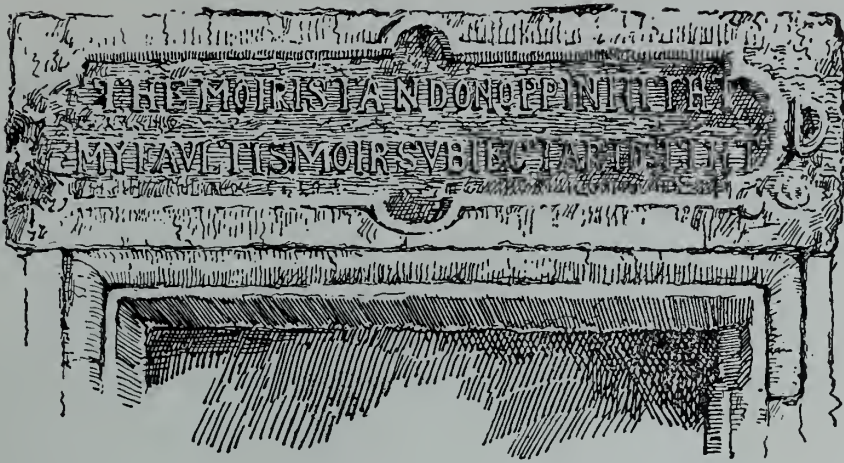 THE MOIR I STAND ON OPPIN HITH
MY FAVLTIS MOIR SVBIECT AR